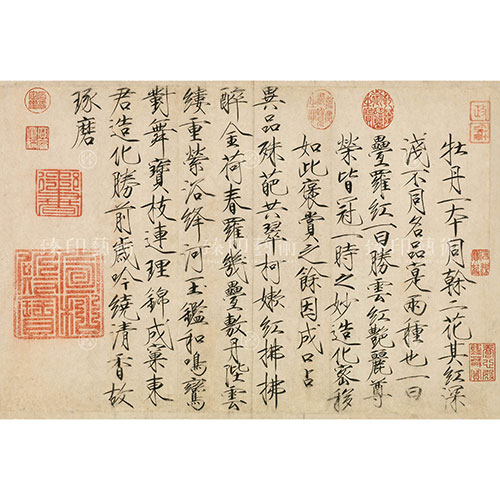 牡丹一本同幹二花其紅深
淺不同名品寔兩種也一曰
疊羅紅一曰勝雲紅艷麗尊
榮皆冠一時之妙造化密移
如此褒賞之餘因成口占
異品殊葩共翠柯嫩紅拂拂
醉金荷春羅幾疊敷丹陛雲
縷重縈浴絳河玉鑑和鳴鸞
對舞寶枝連理錦成窠東
君造化勝前歲吟繞清香故
琢磨
臻印藝術